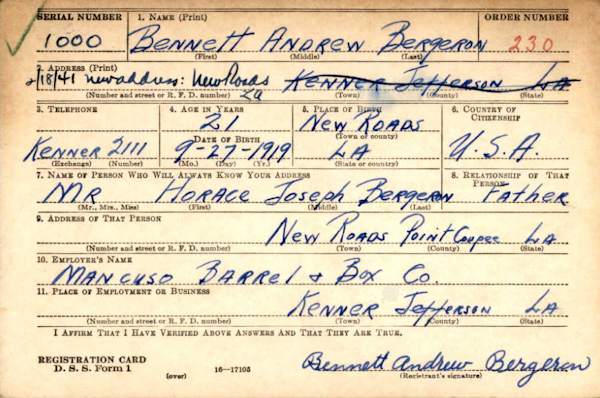 SERIAL NUMBER 1. NAME (Print) ORDER NUMBER
1000 Bennett Andrew Bergeron 230
(First) (Middle) (Last)
2. ADDRESS (Print)
2/18/41 new address: New Roads La Kenner Jefferson LA
(Number and street or R. F. D. number) (Town) (County) (State)
3. TELEPHONE 4. AGE IN YEARS 5. PLACE OF BIRTH 6. COUNTRY OF CITIZENSHIP
21 New Roads
DATE OF BIRTH (Town or county)
Kenner 2111 9-27-1919 LA U.S.A.
(Exchange) (Number) (Mo.) (Day) (Yr.) (State or country)
7. NAME OF PERSON WHO WILL ALWAYS KNOW YOUR ADDRESS 8. RELATIONSHIP OF THAT PERSON
Mr Horace Joseph Bergeron Father
(Mr., Mrs., Miss) (First) (Middle) (Last)
9. ADDRESS OF THAT PERSON
New Roads Point Coupee LA
(Number and street or R. F. D. number) (Town) (County) (State)
10. EMPLOYER'S NAME
Mancuso Barrel + Box Co.
11. PLACE OF EMPLOYMENT OR BUSINESS
Kenner Jefferson LA
(Number and street or R. F. D. number) (Town) (County) (State)
I AFFIRM THAT I HAVE VERIFIED ABOVE ANSWERS AND THAT THEY ARE TRUE.
REGISTRATION CARD
D. S. S. Form 1 (over) 16—17105 Bennett Andrew Bergeron
(Registrant's signature)